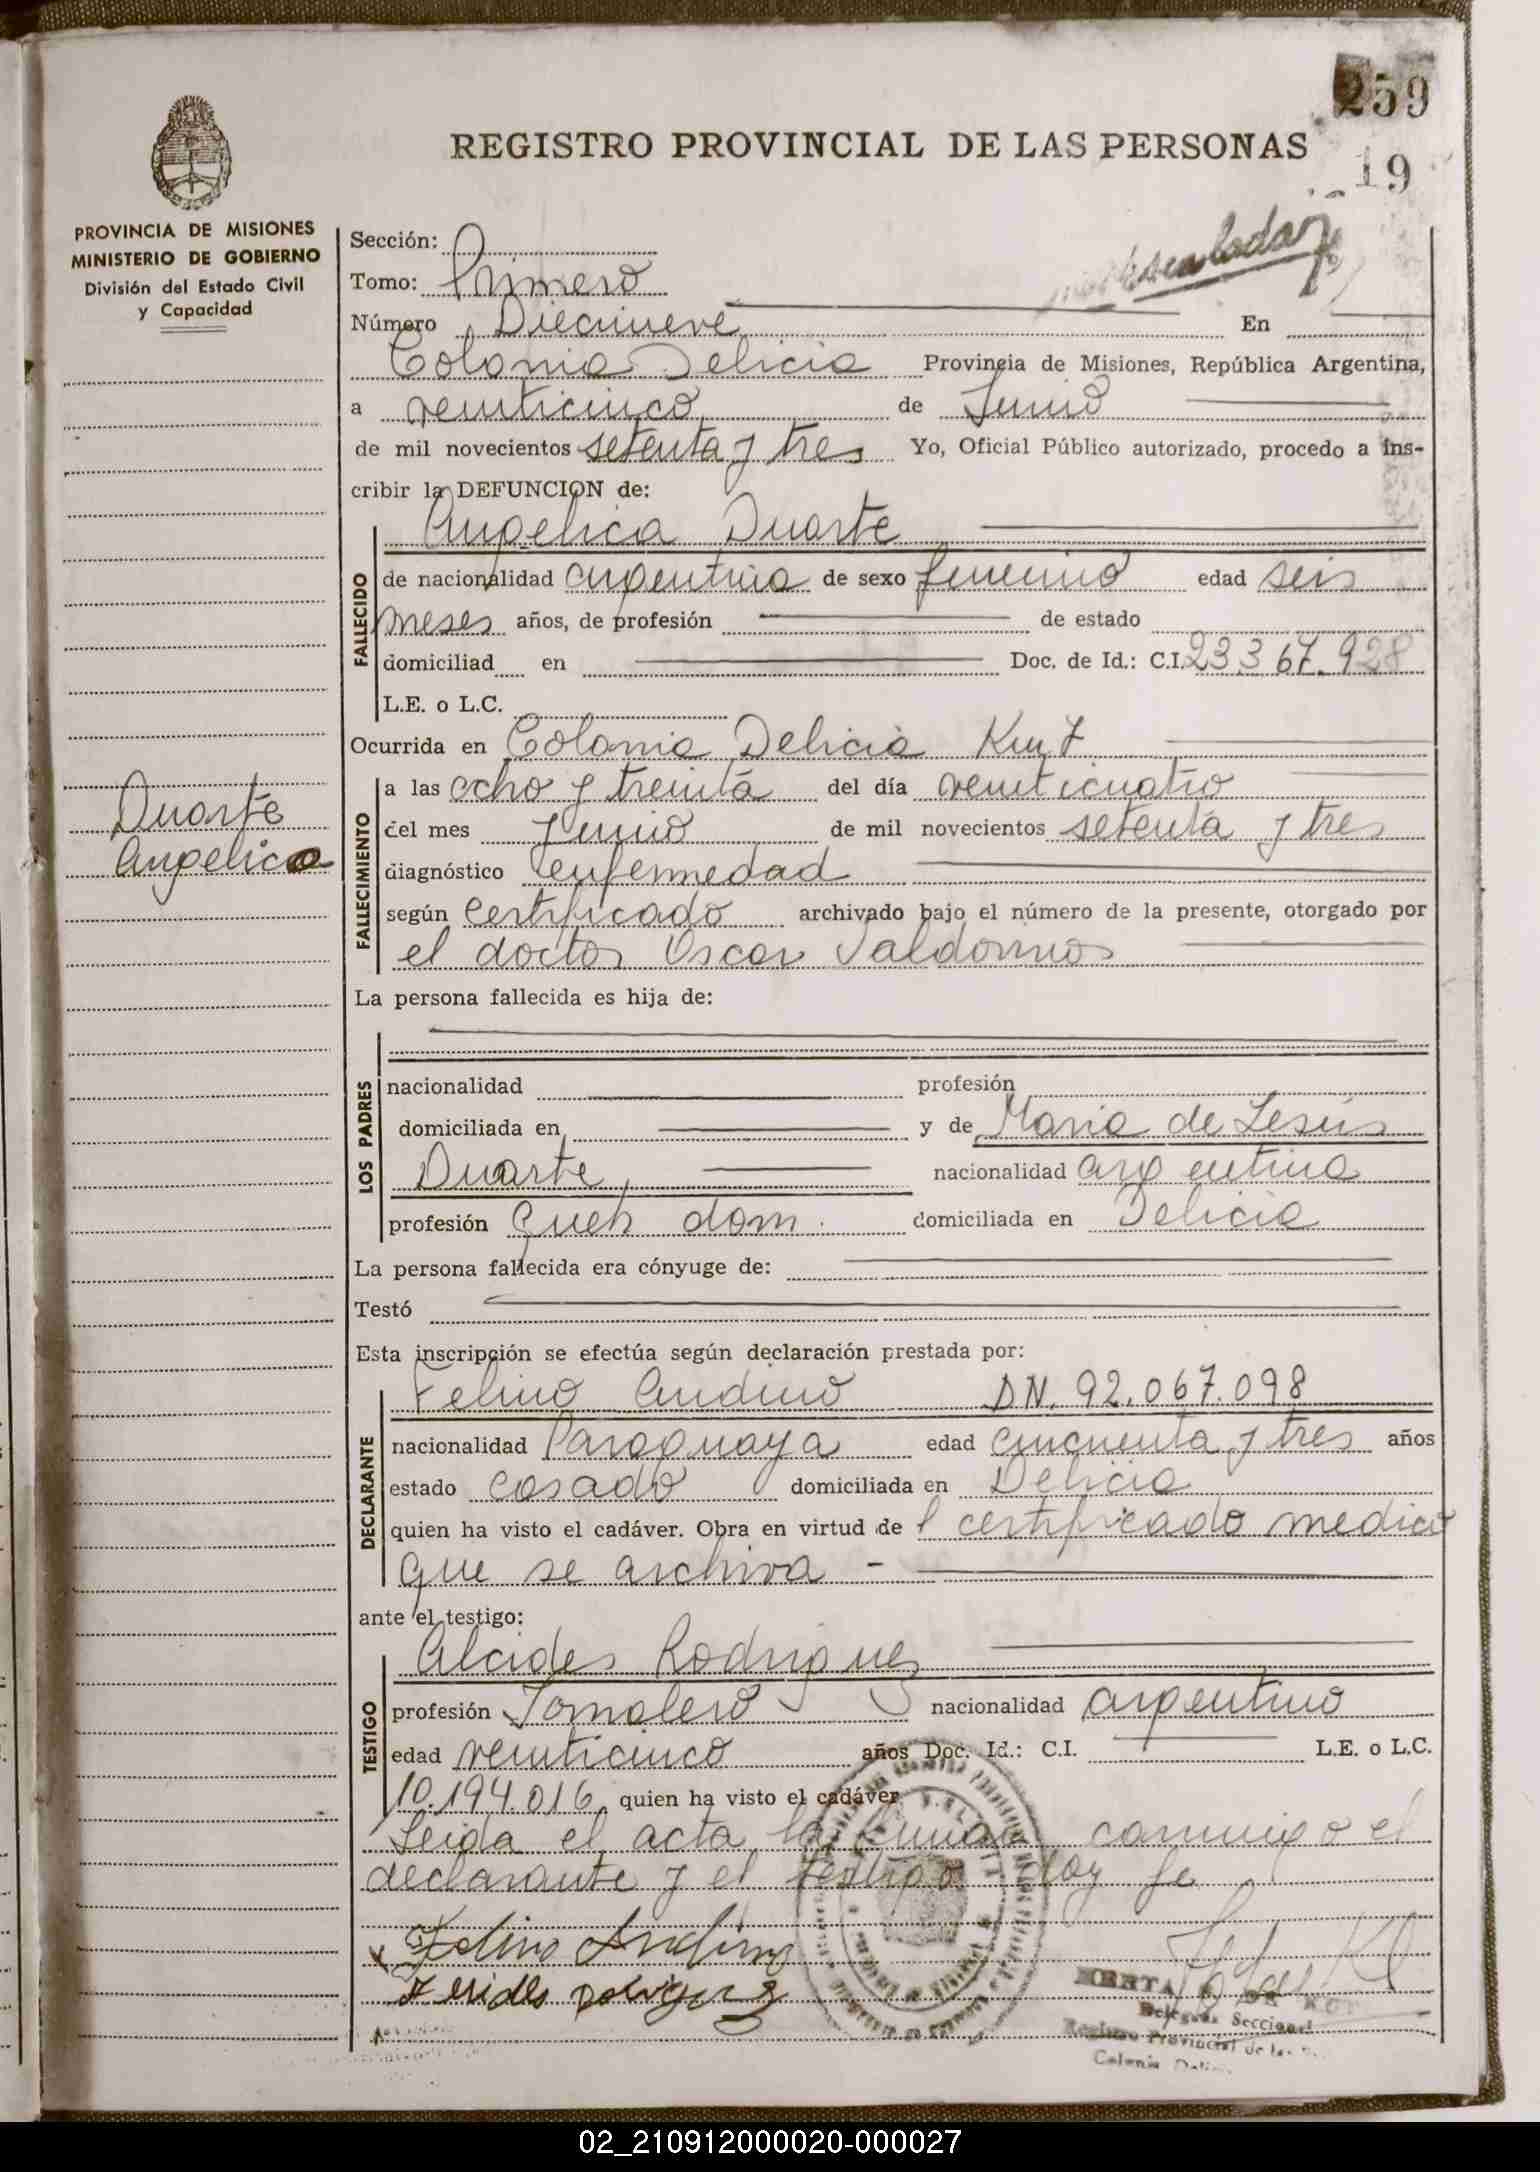 259
REGISTRO PROVINCIAL DE LAS PERSONAS
19
PROVINCIA DE MISIONES
MINISTERIO DE GOBIERNO
División del Estado Civil
y Capacidad
Sección:
Tomo: Primero
Número Diecinueve En
Colonia Delicia Provincia de Misiones, República Argentina,
a veinticinco de Junio
de mil novecientos setenta y tres Yo, Oficial Público autorizado, procedo a ins-
cribir la DEFUNCION de:
Angelica Duarte
FALLECIDO
de nacionalidad argentina de sexo femenino edad seis
meses años, de profesión de estado
domiciliad en Doc. de Id.: C.I. 23.367.928
L.E. o L.C.
Ocurrida en Colonia Delicia Km 7
Duarte
Angelica
FALLECIMIENTO
a las ocho y treinta del día veinticuatro
del mes Junio de mil novecientos setenta y tres
diagnóstico enfermedad
según certificado archivado bajo el número de la presente, otorgado por
el doctor Oscar Valdovinos
La persona fallecida es hija de:
LOS PADRES
nacionalidad profesión
domiciliada en y de Maria de Jesús
Duarte nacionalidad argentina
profesión queh dom. domiciliada en Delicia
La persona fallecida era cónyuge de:
Testó
Esta inscripción se efectúa según declaración prestada por:
DECLARANTE
Felino Andino DN. 92.067.098
nacionalidad Paraguaya edad cincuenta y tres años
estado casado domiciliada en Delicia
quien ha visto el cadáver. Obra en virtud de l certificado medico
que se archiva -
ante el testigo:
TESTIGO
Alcides Rodriguez
profesión Jornalero nacionalidad argentino
edad veinticinco años Doc. Id.: C.I. L.E. o L.C.
10.194.016 quien ha visto el cadáver
Leida el acta la firman conmigo el
declarante y el testigo doy fe
Felino Andino
Delegada Seccional
Registro Provincial de las
Colonia Delicia
02_210912000020-000027